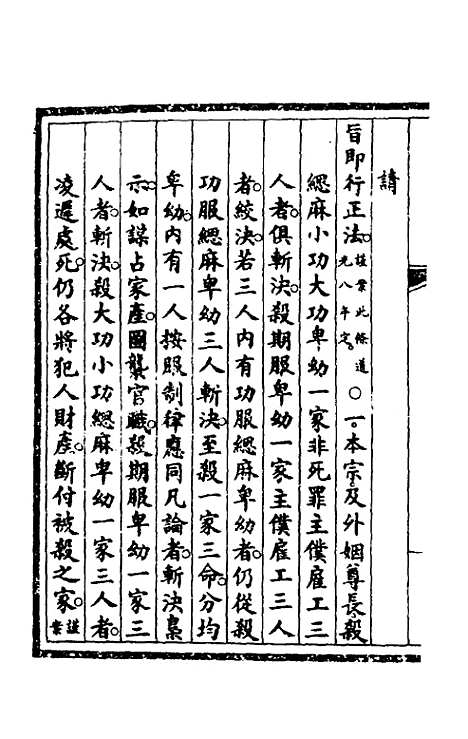 請
旨即行正法謹案此條道光八年定○一本宗及外姻尊長殺
緦麻小功大功卑幼一家非死罪主僕雇工三
人者俱斬決殺期服卑幼一家主僕雇工三人
者絞決若三人內有功服緦麻卑幼者仍從殺
功服緦麻卑幼三人斬決至殺一家三命分均
卑幼內有一人按服制律應同凡論者斬決梟
示如謀占家產圖襲官職殺期服卑幼一家三
人者斬決殺大功小功緦麻卑幼一家三人者
凌遲處死仍各將犯人財產斷付被殺之家謹案